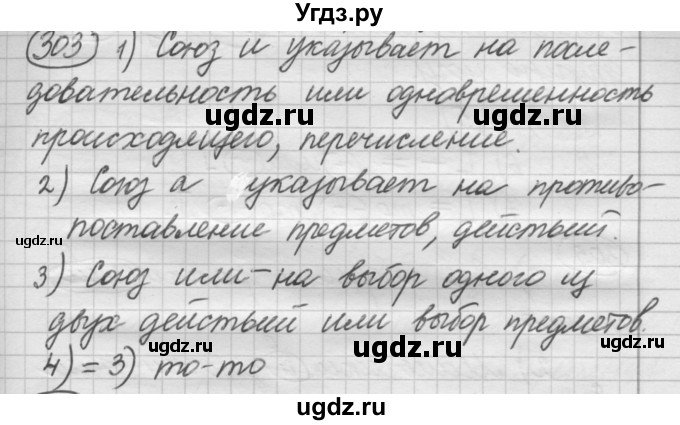 Угдз.ру
303 1) Союз и указывает на после-
довательность или одновременность
gdz.ru
ugdz.ru
происходящего, перечисление.
2) Союз а указывает на противо-
ugdz.ru
поставление предметов, действий.
3) Союз или - на выбор одного из
двух действий или выбор предметов.
ugdz.ru
ugdz.ru
4) = 3) то-то
ugdz.ru